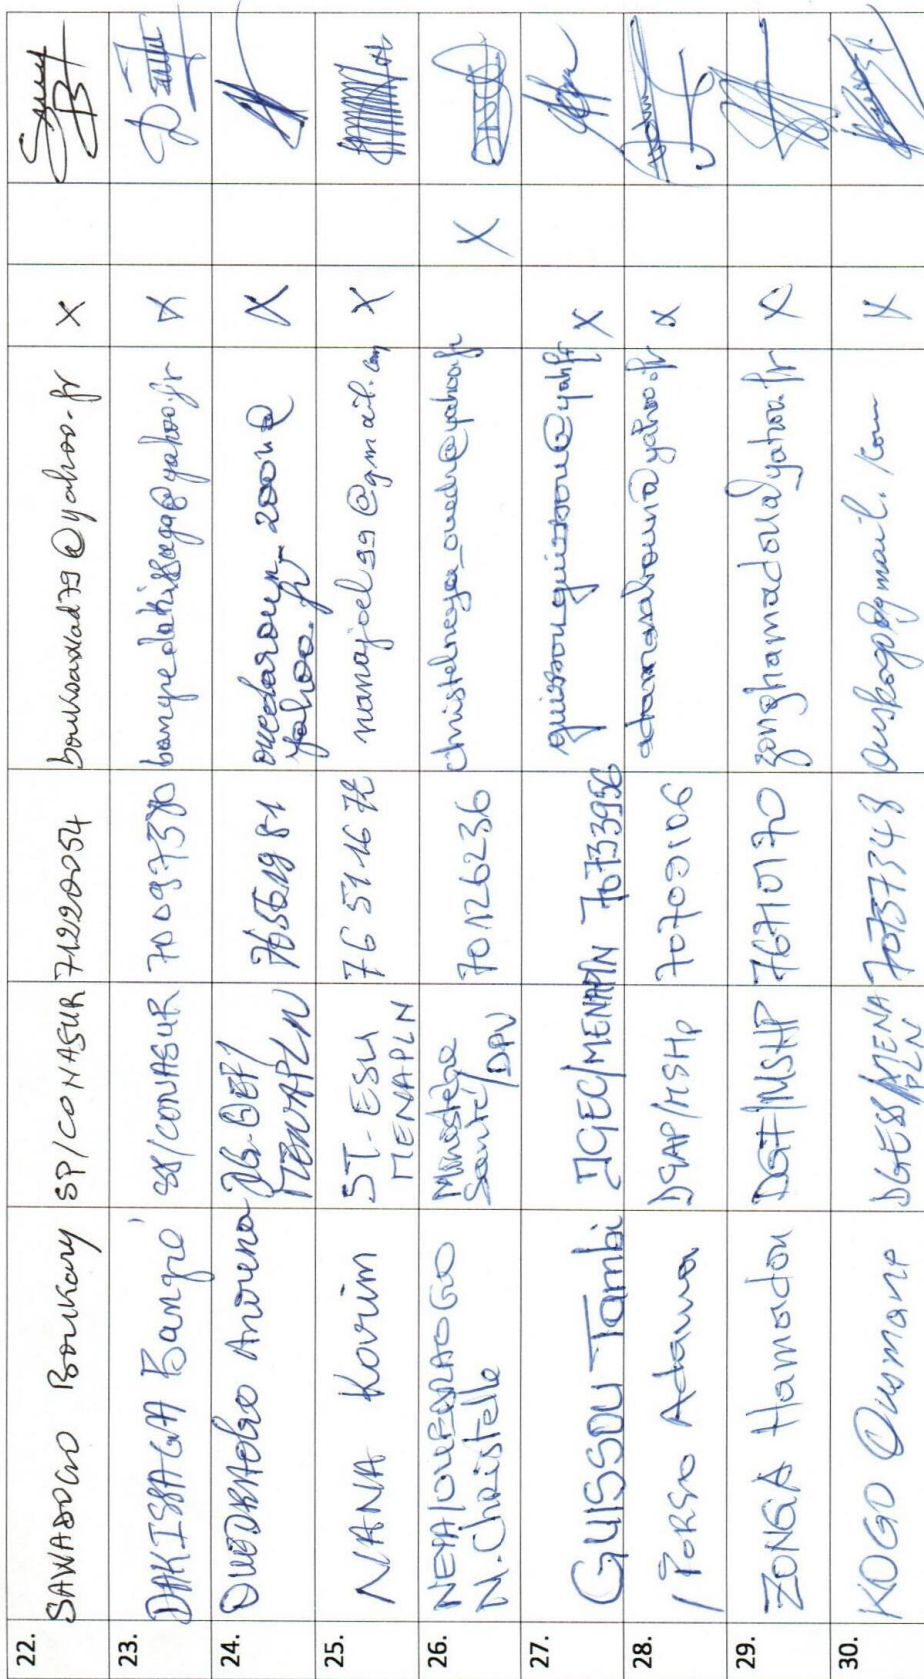 22. SAWADOGO Boukary SP/CONASUR 71220054 bouksawad79@yahoo.fr X
23. DAKISSAGA Bangré SP/CONASUR 70097380 bangredakissaga@yahoo.fr X
24. OUEDRAOGO MENAPLN 76561981 yahoo.fr X
25. NANA Karim ST-ESU MENAPLN 76511672 nanajoel99@gmail.com X
26. NEYA/OUEDRAOGO N. Christelle Ministère Santé/DPV 70126236 christelneya_ouedr@yahoo.fr X
27. GUISSOU Tambi DGEC/MENAPLN 70733956 guissouguissou@yahoo.fr X
28. PORGO Adama DGAP/MSHP 70709106 X
29. ZONGA Hamadou DGF/MSHP 76710170 zonghamadou@yahoo.fr X
30. KOGO Ousmane DGESS/MENAPLN 70737348 X